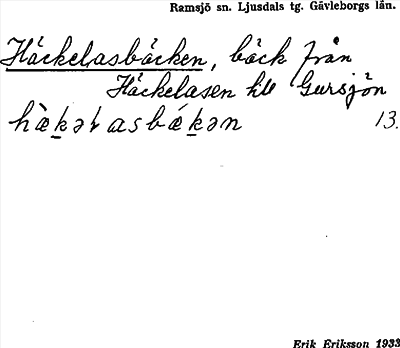 Ramsjö sn. Ljusdals tg. Gävleborgs län.
Häckelasbäcken, bäck från
Häckelasen till Gursjön
hæ̀k̲əɫasbǽk̲ən 13.
Erik Eriksson 1933